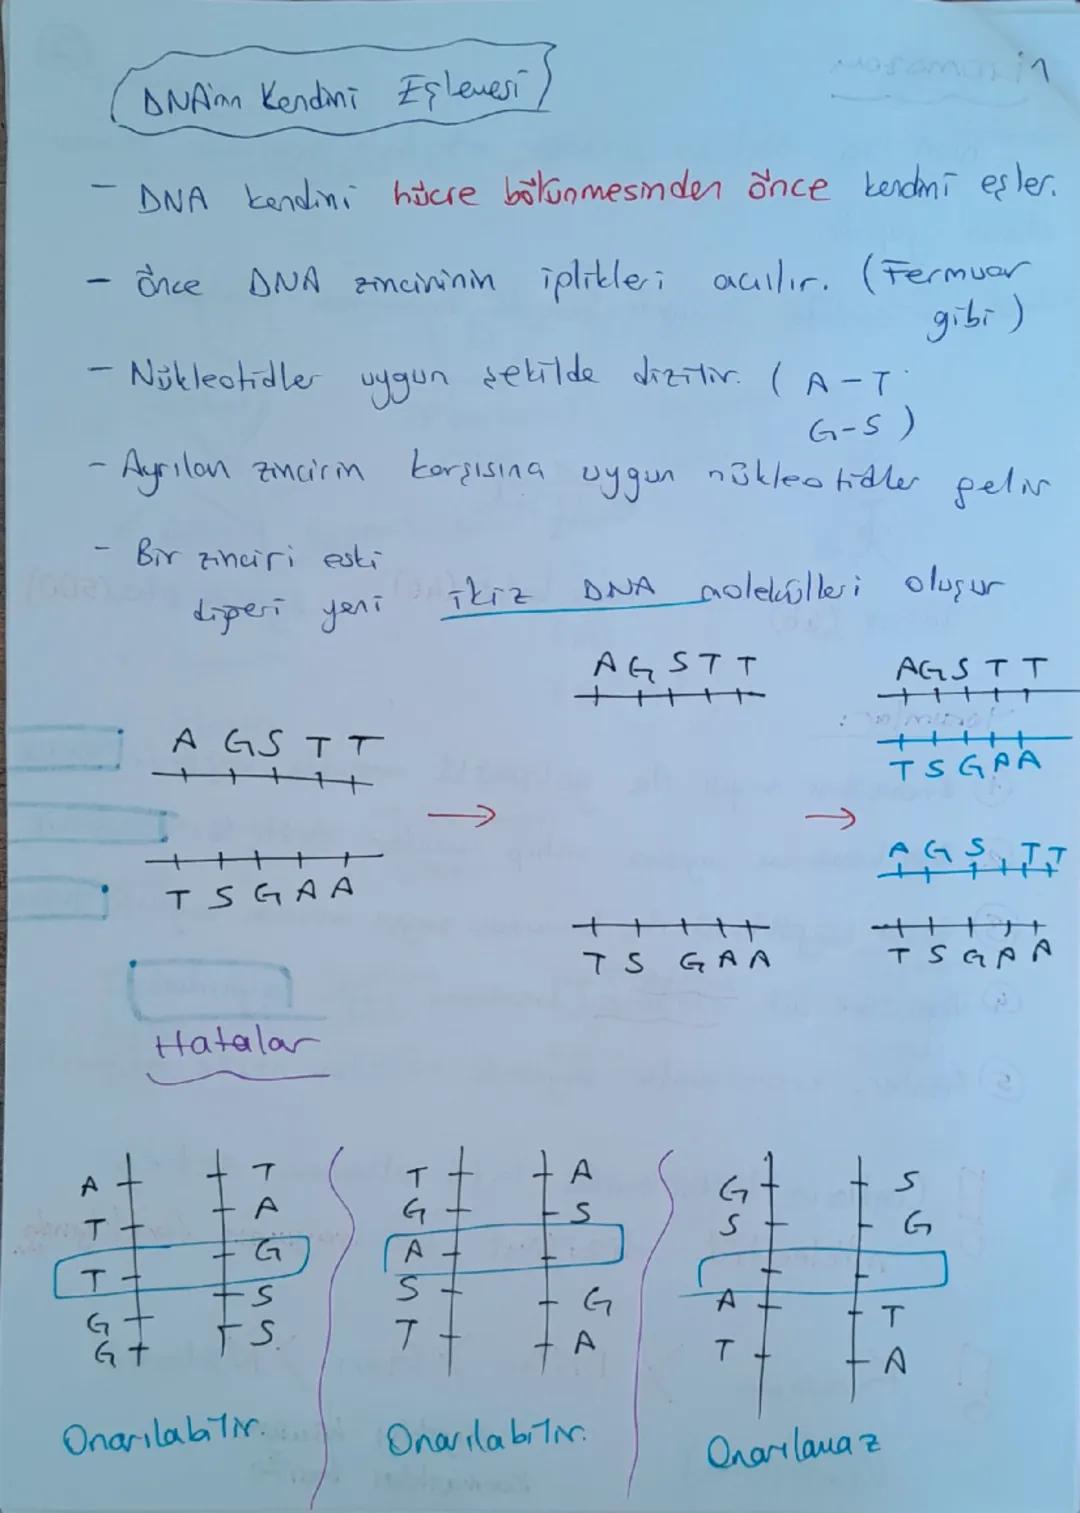 DNA'nın Kendini Eşlemesi
- DNA kendini hücre bölünmesinden önce kendini eşler.
- Önce DNA zincirinin iplikleri açılır. (Fermuar
gibi)
- Nükleotidler uygun şekilde dizilir. ( A-T
G-S )
- Ayrılan zincirin karşısına uygun nükleotidler gelir
- Bir zinciri eski
diğeri yeni ikiz DNA molekülleri oluşur
A G S T T
T S G A A
A G S T T
T S G A A
A G S T T
T S G A A
A G S T T
T S G A A
Hatalar
A T
T A
T G
G S
G S.
Onarılabilir.
T A
G S
A
S G
T A
Onarılabilir.
G S
S G
A T
T A
Onarılamaz